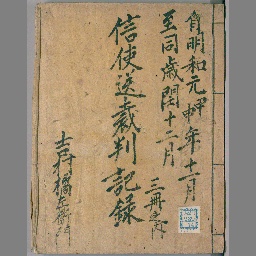 自明和元甲申年十一月
至同歳閏十二月
信使送裁判記録
三冊之内
吉村橘左衛門